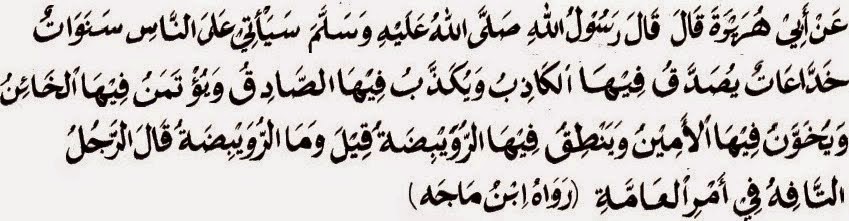 عَنْ أَبِيْ هُرَيْرَةَ قَالَ قَالَ رَسُوْلُ اللهِ صَلَّى اللهُ عَلَيْهِ وَسَلَّمَ سَيَأْتِيْ عَلَى النَّاسِ سَنَوَاتٌ
خَدَّاعَاتٌ يُصَدَّقُ فِيْهَا الْكَاذِبُ وَيُكَذَّبُ فِيْهَا الصَّادِقُ وَيُؤْتَمَنُ فِيْهَا الْخَائِنُ
وَيُخَوَّنُ فِيْهَا الْأَمِيْنُ وَيَنْطِقُ فِيْهَا الرُّوَيْبِضَةُ قِيْلَ وَمَا الرُّوَيْبِضَةُ قَالَ الرَّجُلُ
التَّافِهُ فِيْ أَمْرِ الْعَامَّةِ (رَوَاهُ ابْنُ مَاجَه)